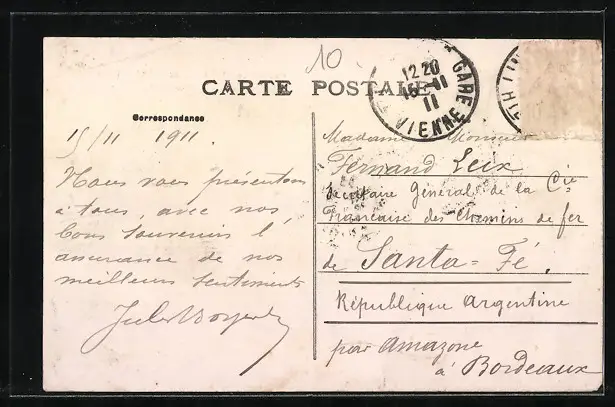 10
CARTE POSTALE
Correspondance
15/11 1911.
Nous vous présentons
à tous, avec nos
bons souvenirs l'
assurance de nos
meilleurs sentiments
Jules
12 20
15-11
11
GARE
VIENNE
Madame Monsieur
Fernand Leix
Secrétaire Général de la Cie
Française des Chemins de fer
de Santa-Fé.
République Argentine
par Amazone
à Bordeaux